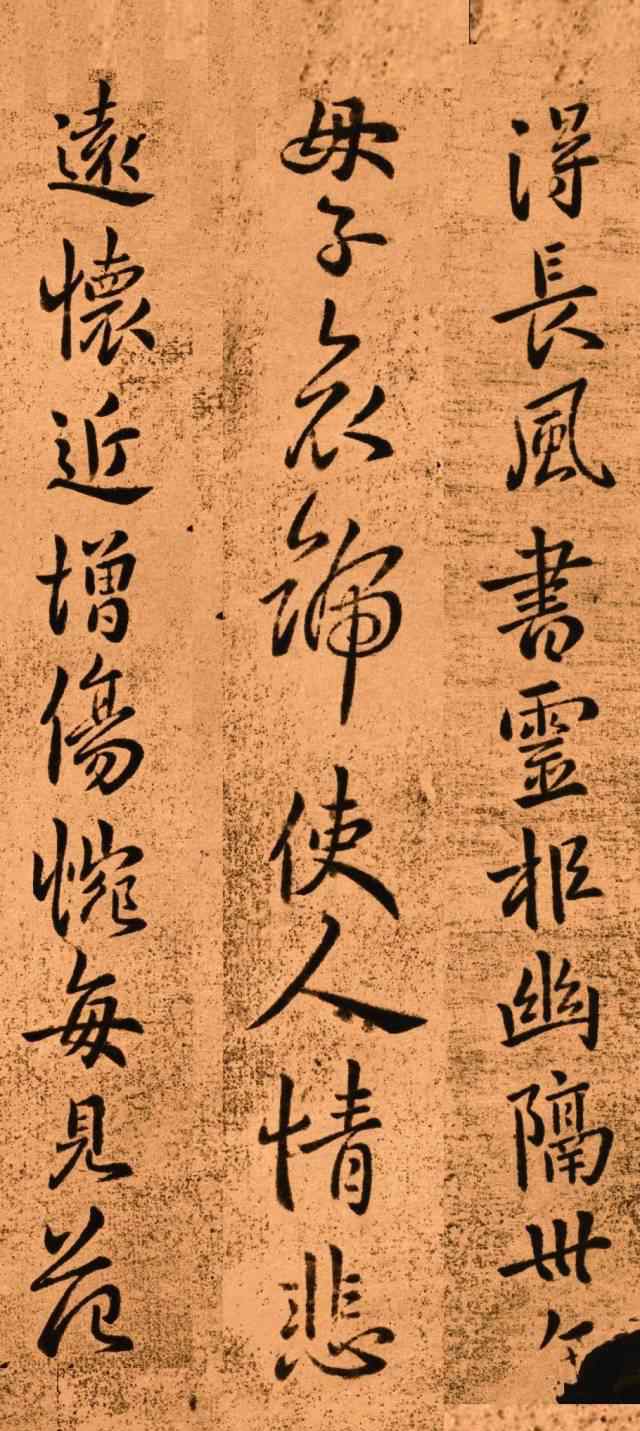 得長風書靈柩幽隔卅
母子哀號使人情悲
遠懷近增傷惋每見范